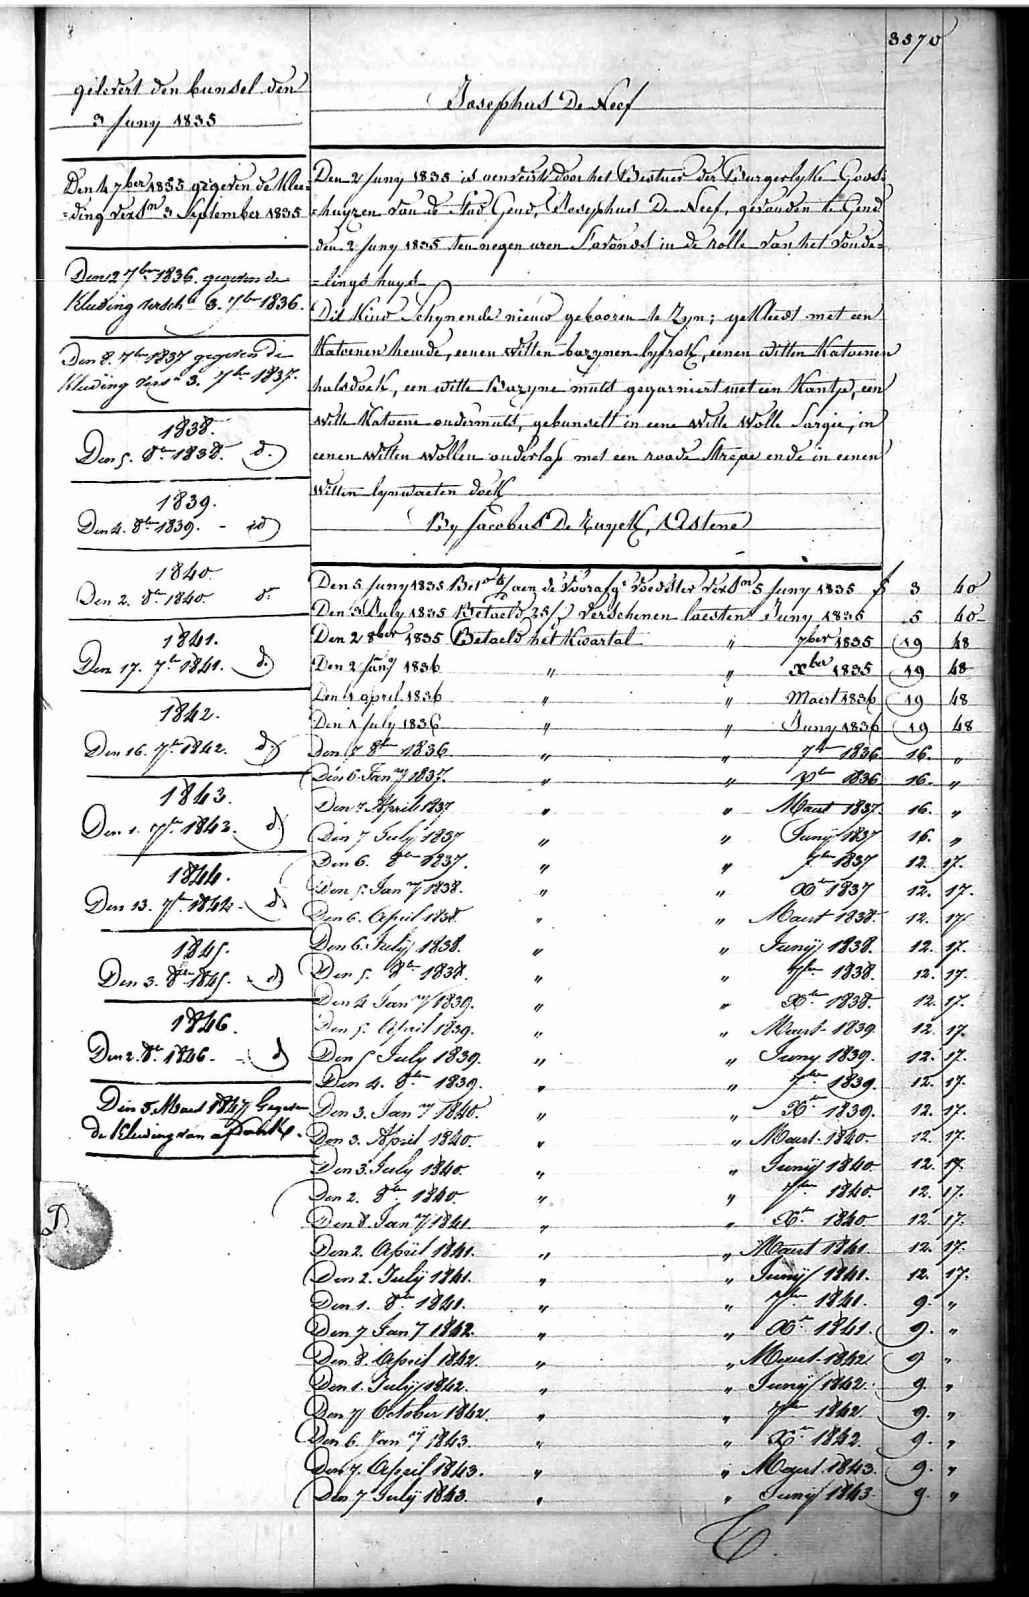 3570
gelevert den bunsel den
3 Juny 1835
Josephus De Neef
Den 4 7ber 1835 gegeven de Klee=
=ding versn 3 September 1835
Den 12 7ber 1836. gegeven de
Kleeding versch 3. 7ber 1836.
Den 8. 7br 1837 gegeven de
Kleeding versn 3. 7ber 1837.
1838.
Den 5. 8br 1838. d.
1839.
Den 4. 8br 1839. - id
1840.
Den 2. 8br 1840. do
1841.
Den 17. 7br 1841. d.
1842.
Den 16. 7br 1842. d.
1843.
Den 1. 7br 1843. d
1844.
Den 13. 7br 1844. d.
1845.
Den 3. 8bre 1845. d
1846.
Den 2. 8br 1846. d
Den 5. Maert 1847 Gegeven
de Kleeding van
D
Den 2 Juny 1835 is door het Bestuer der Burgerlyke Gods=
=huyzen van de stad Gend, Josephus De Neef, gevonden te Gend
den 2 Juny 1835 ten negen uren s'avonds in de rolle van het vonde=
=lings huys
Dit Kind schynende nieuw gebooren te zyn; gekleedt met een
Katoenen hemde, eenen witten bazynen lyfrok, eenen witten Katoenen
halsdoek, een witte bazyne muts gegarniert met een Kantje, een
witte Katoene ondermuts, gebunselt in eene witte wolle Sargie, in
eenen witten wollen onderlap met een roode strepe ende in eenen
witten lynwaeten doek
By Jacobus De Zuyck, Astene
Den 5 Juny 1835 aen de voedster versn 5 Juny 1835 f 3 40
Den 3 July 1835 Betaeld verschenen laesten Juny 1835 5 40
Den 2 8ber 1835 Betaeld het Kwartal " 7ber 1835 19 48
Den 2 Jany 1836 " " Xber 1835 19 48
Den 1 april 1836 " " Maert 1836 19 48
Den 1 July 1836 " " Juny 1836 19 48
Den 7 8br 1836 " " 7br 1836 16. "
Den 6 Jany 1837. " " Xbr 1836 16. "
Den 7. April 1837 " " Maert 1837. 16. "
Den 7 July 1837 " " Juny 1837 16. "
Den 6. 8br 1837. " " 7br 1837 12. 17.
Den 5. Jany 1838. " " Xbr 1837 12. 17.
Den 6. April 1838. " " Maert 1838. 12. 17
Den 6. July 1838. " " Juny 1838. 12. 17.
Den 5. 8br 1838. " " 7br 1838. 12. 17.
Den 4 Jany 1839. " " Xbr 1838. 12. 17.
Den 5. April 1839. " " Maert 1839 12. 17.
Den 5 July 1839. " " Juny 1839. 12. 17.
Den 4. 8br 1839. " " 7bre 1839. 12. 17.
Den 3. Jany 1840. " " Xbr 1839. 12. 17.
Den 3. April 1840. " " Maert 1840 12. 17.
Den 3. July 1840. " " Juny 1840 12. 17.
Den 2. 8br 1840. " " 7br 1840. 12. 17.
Den 8. Jany 1841 " " Xbr 1840 12. 17.
Den 2. April 1841. " " Maert 1841. 12. 17.
Den 2. July 1841. " " Juny 1841. 12. 17.
Den 1. 8br 1841. " " 7br 1841. 9. "
Den 7. Jany 1842. " " Xbr 1841. 9. "
Den 8. April 1842. " " Maert 1842 9 "
Den 1. July 1842. " " Juny 1842. 9. "
Den 7 October 1842. " " 7br 1842. 9. "
Den 6. Jany 1843. " " Xbr 1842. 9. "
Den 7. April 1843. " " Maert 1843. 9. "
Den 7 July 1843. " " Juny 1843 9. "